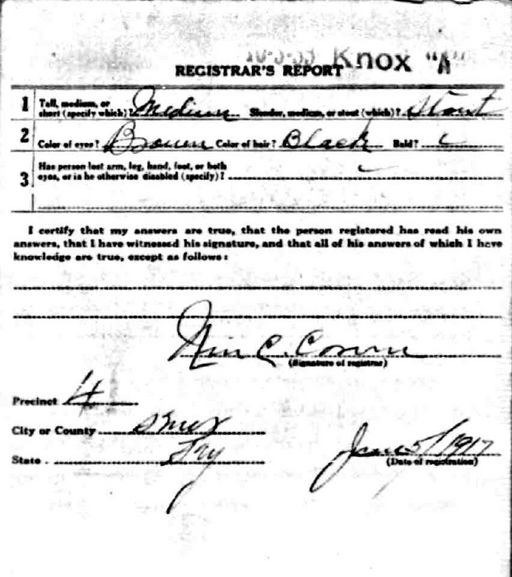 10-3-33 Knox "A"
REGISTRAR'S REPORT
1 Tall, medium, or short (specify which)? Medium Slender, medium, or stout (which)? Stout
2 Color of eyes? Brown Color of hair? Black Bald?
3 Has person lost arm, leg, hand, foot, or both eyes, or is he otherwise disabled (specify)?
I certify that my answers are true, that the person registered has read his own
answers, that I have witnessed his signature, and that all of his answers of which I have
knowledge are true, except as follows:
Wm C.
(Signature of registrar)
Precinct 4
City or County Knox
State Ky
June 5/1917
(Date of registration)